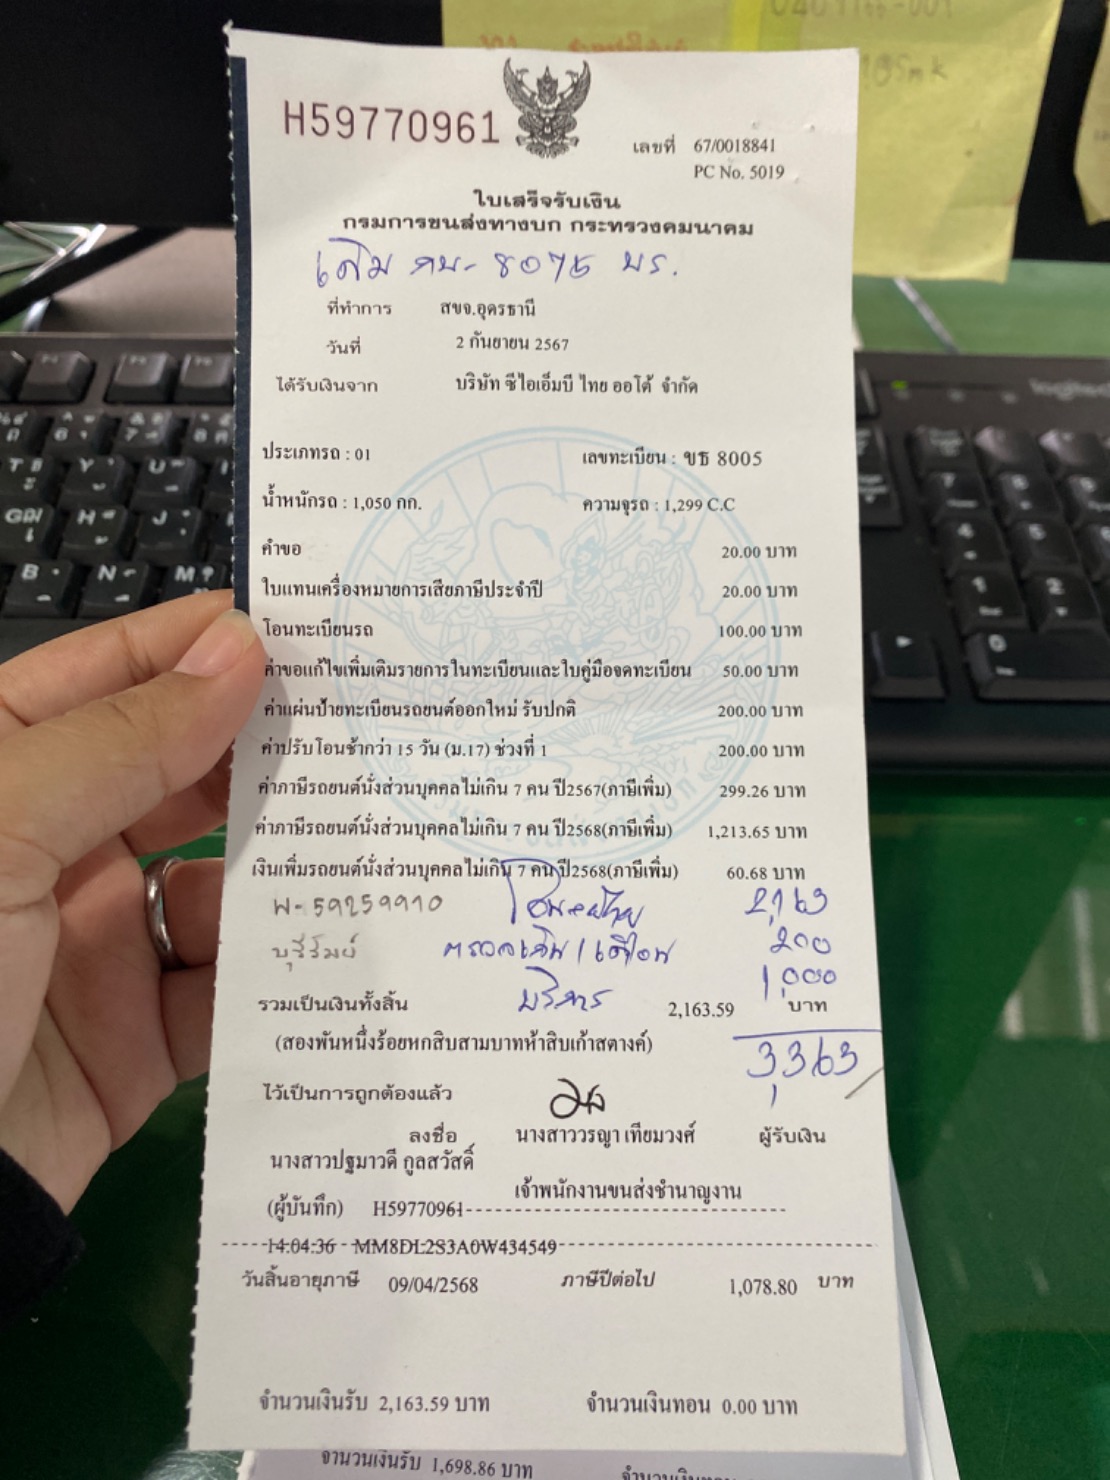 H59770961
เลขที่ 67/0018841
PC No. 5019
ใบเสร็จรับเงิน
กรมการขนส่งทางบก กระทรวงคมนาคม
เดิม กบ- 8075 บร.
ที่ทำการ สขจ.อุดรธานี
วันที่ 2 กันยายน 2567
ได้รับเงินจาก บริษัท ซีไอเอ็มบี ไทย ออโต้ จำกัด
ประเภทรถ : 01 เลขทะเบียน : ขธ 8005
น้ำหนักรถ : 1,050 กก. ความจุรถ : 1,299 C.C
คำขอ 20.00 บาท
ใบแทนเครื่องหมายการเสียภาษีประจำปี 20.00 บาท
โอนทะเบียนรถ 100.00 บาท
ค่าขอแก้ไขเพิ่มเติมรายการในทะเบียนและใบคู่มือจดทะเบียน 50.00 บาท
ค่าแผ่นป้ายทะเบียนรถยนต์ออกใหม่ รับปกติ 200.00 บาท
ค่าปรับโอนช้ากว่า 15 วัน (ม.17) ช่วงที่ 1 200.00 บาท
ค่าภาษีรถยนต์นั่งส่วนบุคคลไม่เกิน 7 คน ปี2567(ภาษีเพิ่ม) 299.26 บาท
ค่าภาษีรถยนต์นั่งส่วนบุคคลไม่เกิน 7 คน ปี2568(ภาษีเพิ่ม) 1,213.65 บาท
เงินเพิ่มรถยนต์นั่งส่วนบุคคลไม่เกิน 7 คน ปี2568(ภาษีเพิ่ม) 60.68 บาท
พ-59259910 2,163
บุรีรัมย์ 200
บริการ 1,000
รวมเป็นเงินทั้งสิ้น 2,163.59 บาท
(สองพันหนึ่งร้อยหกสิบสามบาทห้าสิบเก้าสตางค์) 3,363
ไว้เป็นการถูกต้องแล้ว
ลงชื่อ นางสาววรญา เทียมวงศ์ ผู้รับเงิน
นางสาวปฐมาวดี กูลสวัสดิ์
เจ้าพนักงานขนส่งชำนาญงาน
(ผู้บันทึก) H59770961
14:04:36 MM8DL2S3A0W434549
วันสิ้นอายุภาษี 09/04/2568 ภาษีปีต่อไป 1,078.80 บาท
จำนวนเงินรับ 2,163.59 บาท จำนวนเงินทอน 0.00 บาท
จำนวนเงินรับ 1,698.86 บาท